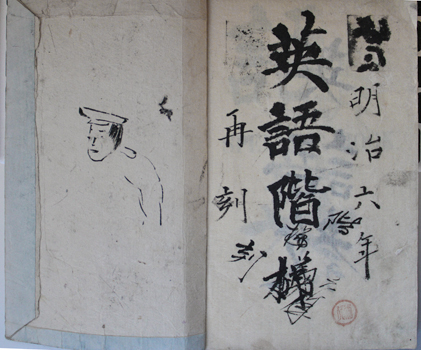 明治六年
英語階梯
再刻